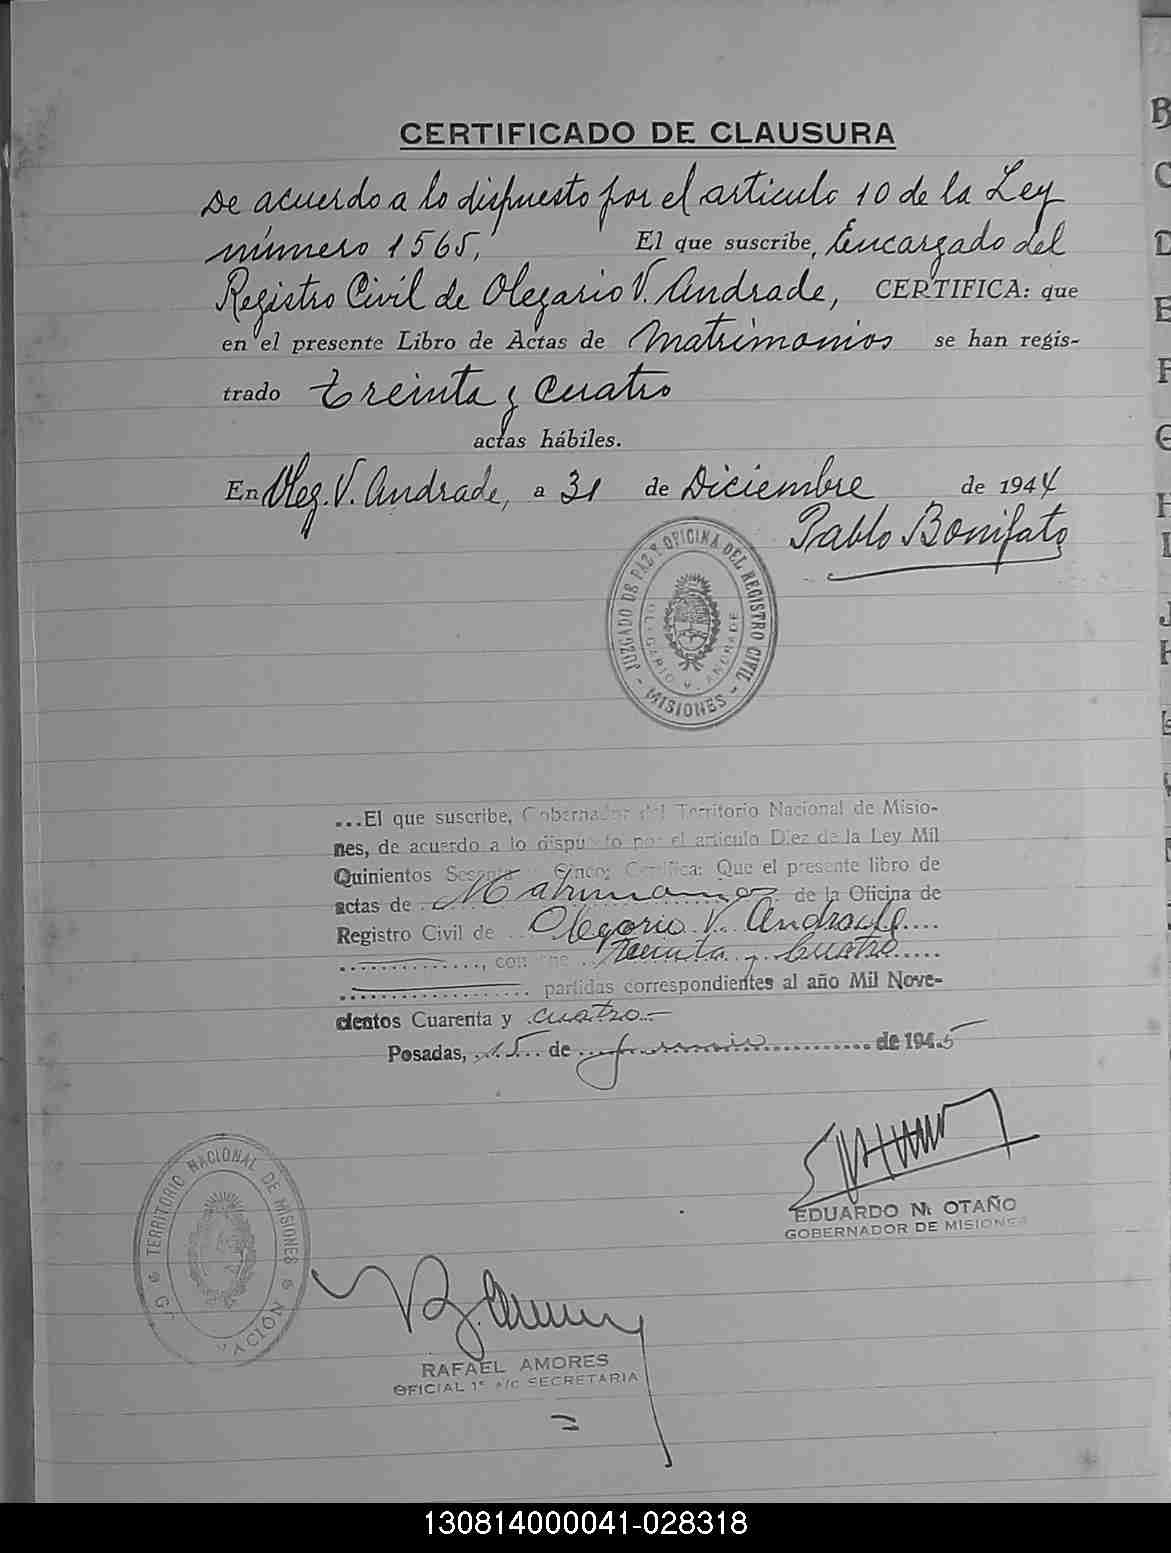 CERTIFICADO DE CLAUSURA
De acuerdo a lo dispuesto por el articulo 10 de la Ley
número 1565, El que suscribe, Encargado del
Registro Civil de Olegario V. Andrade, CERTIFICA: que
en el presente Libro de Actas de Matrimonios se han regis-
trado treinta y cuatro
actas hábiles.
En Oleg. V. Andrade, a 31 de Diciembre de 1944
Pablo Bonifato
JUZGADO DE PAZ Y OFICINA DEL REGISTRO CIVIL
OLEGARIO V. ANDRADE
- MISIONES -
...El que suscribe, Gobernador del Territorio Nacional de Misio-
nes, de acuerdo a lo dispuesto por el artículo Diez de la Ley Mil
Quinientos Sesenta Cinco; Certifica: Que el presente libro de
actas de Matrimonios de la Oficina de
Registro Civil de Olegario V. Andrade
treinta y cuatro
partidas correspondientes al año Mil Nove-
cientos Cuarenta y cuatro.-
Posadas, 15 de de 1945
EDUARDO M. OTAÑO
GOBERNADOR DE MISIONES
TERRITORIO NACIONAL DE MISIONES
RAFAEL AMORES
OFICIAL 1º a/c SECRETARIA
130814000041-028318